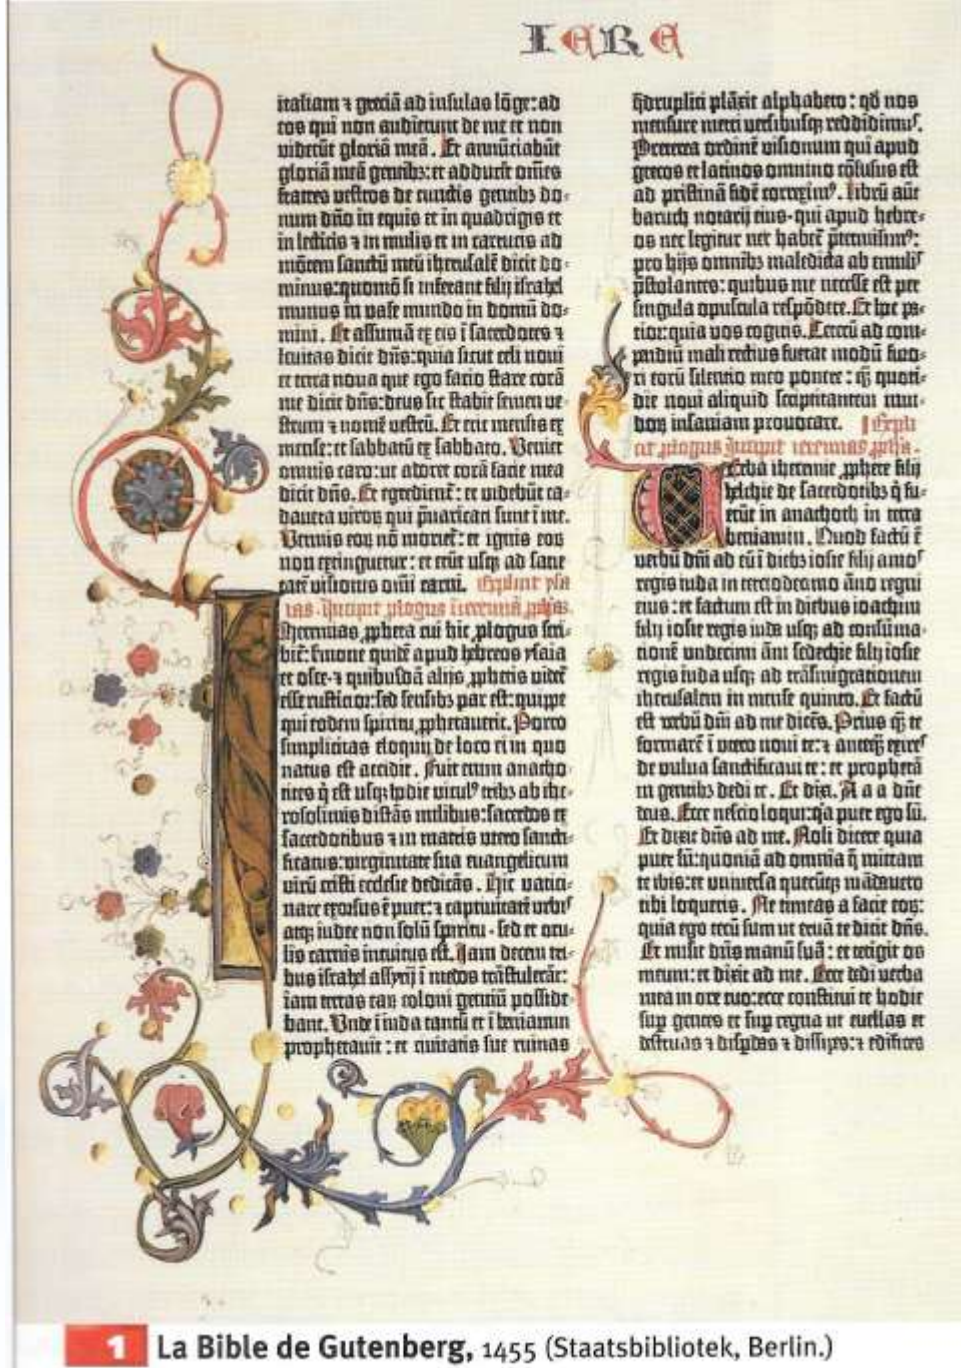 IERE
italiam ⁊ greciā ad insulas lōge: ad
eos qui non audierunt de me et non
viderūt gloriā meā. Et annūciabūt
gloriā meā gentibꝫ: et adducēt omēs
fratres vestros de cunctis gentibꝫ do-
num dño in equis et in quadrigis et
in lecticis ⁊ in mulis et in carrucis ad
mōtem sanctū meū iherusalē dicit do-
minus: quomō si inferant filij israhel
munus in vase mundo in domū do-
mini. Et assumā ex eis ī sacerdotes ⁊
levitas dicit dñs: quia sicut celi novi
et terra nova que ego facio stare corā
me dicit dñs: deus sic stabit semen ve-
strum ⁊ nomē vestrū. Et erit mensis ex
mense: et sabbatū ex sabbato. Veniet
omnis caro: ut adoret corā facie mea
dicit dñs. Et egrediēt: et videbūt ca-
davera virorꝝ qui p̄varicati sunt ī me.
Vermis eorꝝ nō moriet: et ignis eorꝝ
non extinguetur: et erūt usqꝫ ad facie-
tatē visionis omī carni. Explicit ysa-
ias. Incipit prologus iheremie prophete.
Iheremias ꝓpheta cui hic ꝓlogus scri-
bit: sermone quidē apud hebreos ysaia
et osee ⁊ quibusdā alijs ꝓphetis videt
esse rusticior: sed sensibꝫ par est: quippe
qui eodem spiritu ꝓphetaverit. Porro
simplicitas eloquij de loco ei in quo
natus est accidit. Fuit enim anatho-
tites q̄ est usqꝫ hodie vicul⁹ tribꝫ ab ihe-
rosolimis distās milibus: sacerdos ex
sacerdotibus ⁊ in matris utero sancti-
ficatus: virginitate sua evangelicum
virū cristi ecclesie dedicās. Hic vatici-
nare exorsus ē puer: ⁊ captivitatē urbis
atqꝫ iudee non solū spiritu · sed et ocu-
lis carnis intuitus est. Jam decem tri-
bus israhel assyrij ī medos trāstulerāt:
iam terras earꝝ coloni gentiū posside-
bant. Unde ī iuda tantū et ī beniamin
prophetavit: et civitatis sue ruinas
q̄druplici plāxit alphabeto: qđ nos
mensure metri versibusqꝫ reddidimus.
Preterea ordinē visionum qui apud
grecos et latinos omnino cōfusus est
ad pristinā fidē correxim⁹. Librū aūt
baruch notarij eius · qui apud hebre-
os nec legitur nec habet p̄termisim⁹:
pro hijs omnibꝫ maledicta ab emulis
p̄stolantes: quibus me necesse est per
singula opuscula respōdere. Et hoc pa-
tior: quia vos cogitis. Ceterū ad com-
pendiū mali rectius fuerat modū furo-
ri eorū silentio meo ponere: q̄ꝫ quoti-
die novi aliquid scriptitantem invi-
dorꝝ insaniam provocare. Expli-
cit prologus Incipit ieremias ꝓpheta.
Verba iheremie ꝓphete filij
helchie de sacerdotibꝫ q̄ fu-
erūt in anathoth in terra
beniamin. Quod factū ē
verbū dñi ad eū ī diebꝫ iosie filij amos
regis iuda in terciodecimo āno regni
eius: et factum est in diebus ioachim
filij iosie regis iuda usqꝫ ad consūma-
tionē undecimi āni sedechie filij iosie
regis iuda usqꝫ ad trāsmigrationem
iherusalem in mense quinto. Et factū
est verbū dñi ad me dicēs. Prius q̄ꝫ te
formarē ī utero novi te: ⁊ anteq̄ꝫ exires
de vulva sanctificavi te: et prophetā
in gentibꝫ dedi te. Et dixi. A a a dñe
deus. Ecce nescio loqui: q̄a puer ego sū.
Et dixit dñs ad me. Noli dicere quia
puer sū: quoniā ad omnia q̄ mittam
te ibis: et universa quecūqꝫ mādavero
tibi loqueris. Ne timeas a facie eorꝝ:
quia ego tecū sum ut eruā te dicit dñs.
Et misit dñs manū suā: et tetigit os
meum: et dixit ad me. Ecce dedi verba
mea in ore tuo: ecce constitui te hodie
sup gentes et sup regna ut evellas et
destruas ⁊ disperdas ⁊ dissipes: ⁊ edifices
1 La Bible de Gutenberg, 1455 (Staatsbibliotek, Berlin.)